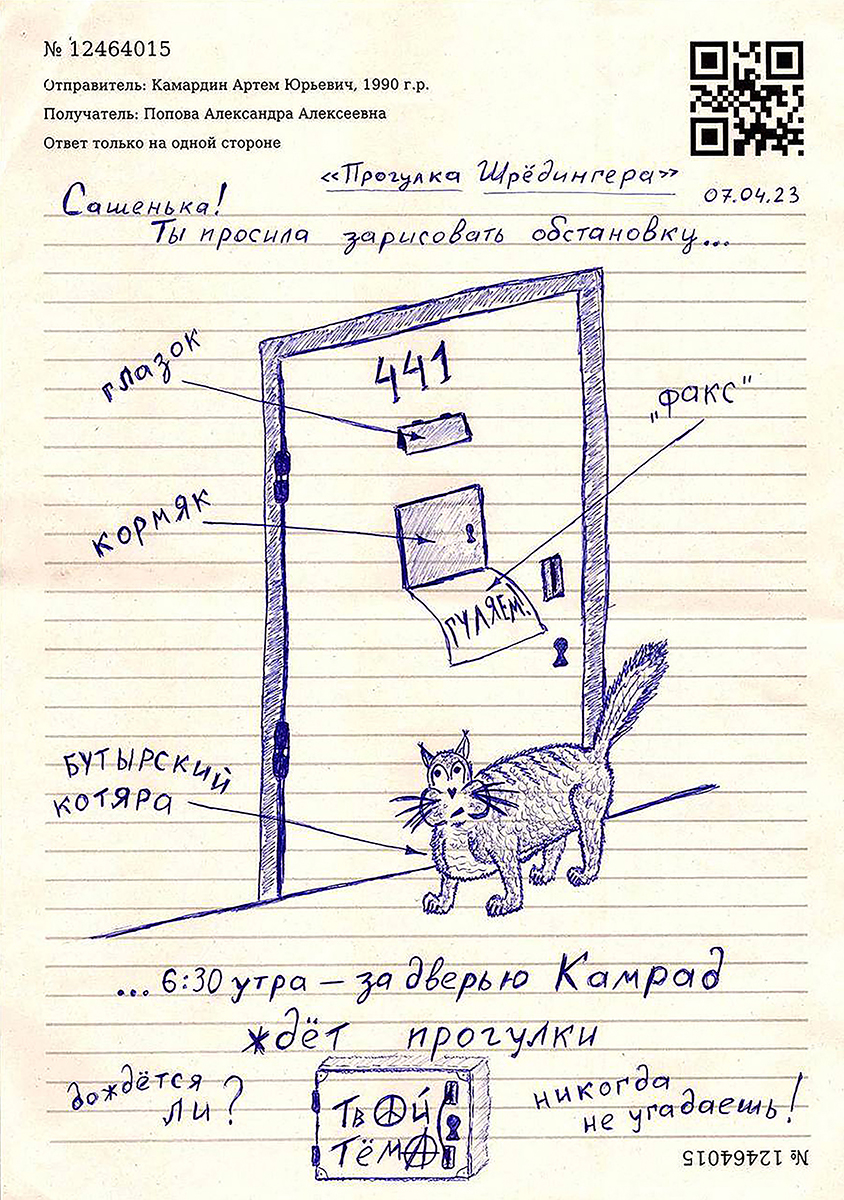 № 12464015
Отправитель: Камардин Артем Юрьевич, 1990 г.р.
Получатель: Попова Александра Алексеевна
Ответ только на одной стороне
«Прогулка Шрёдингера»
07.04.23
Сашенька!
Ты просила зарисовать обстановку...
глазок
441
„факс"
кормяк
ГУЛЯЕМ!
БУТЫРСКИЙ
котяра
... 6:30 утра – за дверью Камрад
ждёт прогулки
дождётся
ли?
Твой
Тёма
никогда
не угадаешь!
№ 12464015